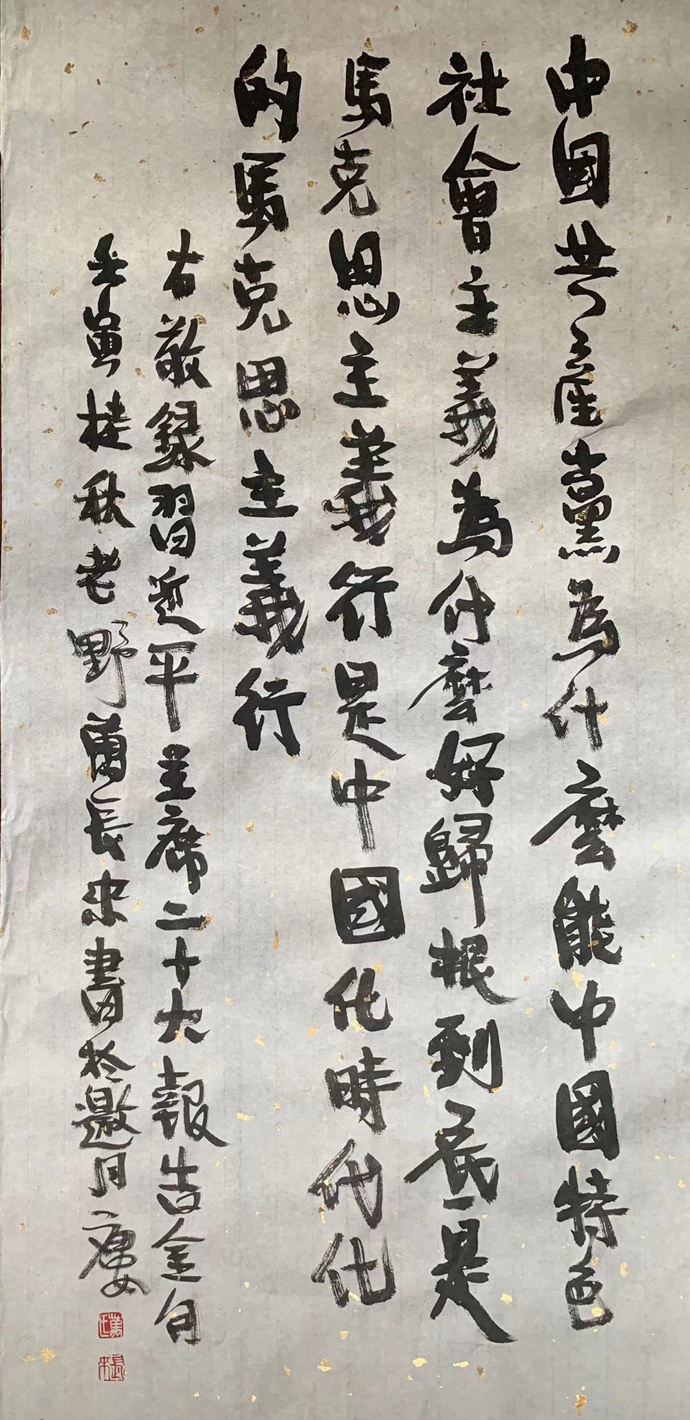 中國共產黨為什麼能中國特色
社會主義為什麼好歸根到底是
馬克思主義行是中國化時代化
的馬克思主義行
右敬録習近平主席二十大報告金句
壬寅桂秋老野萬長書於邀月廔